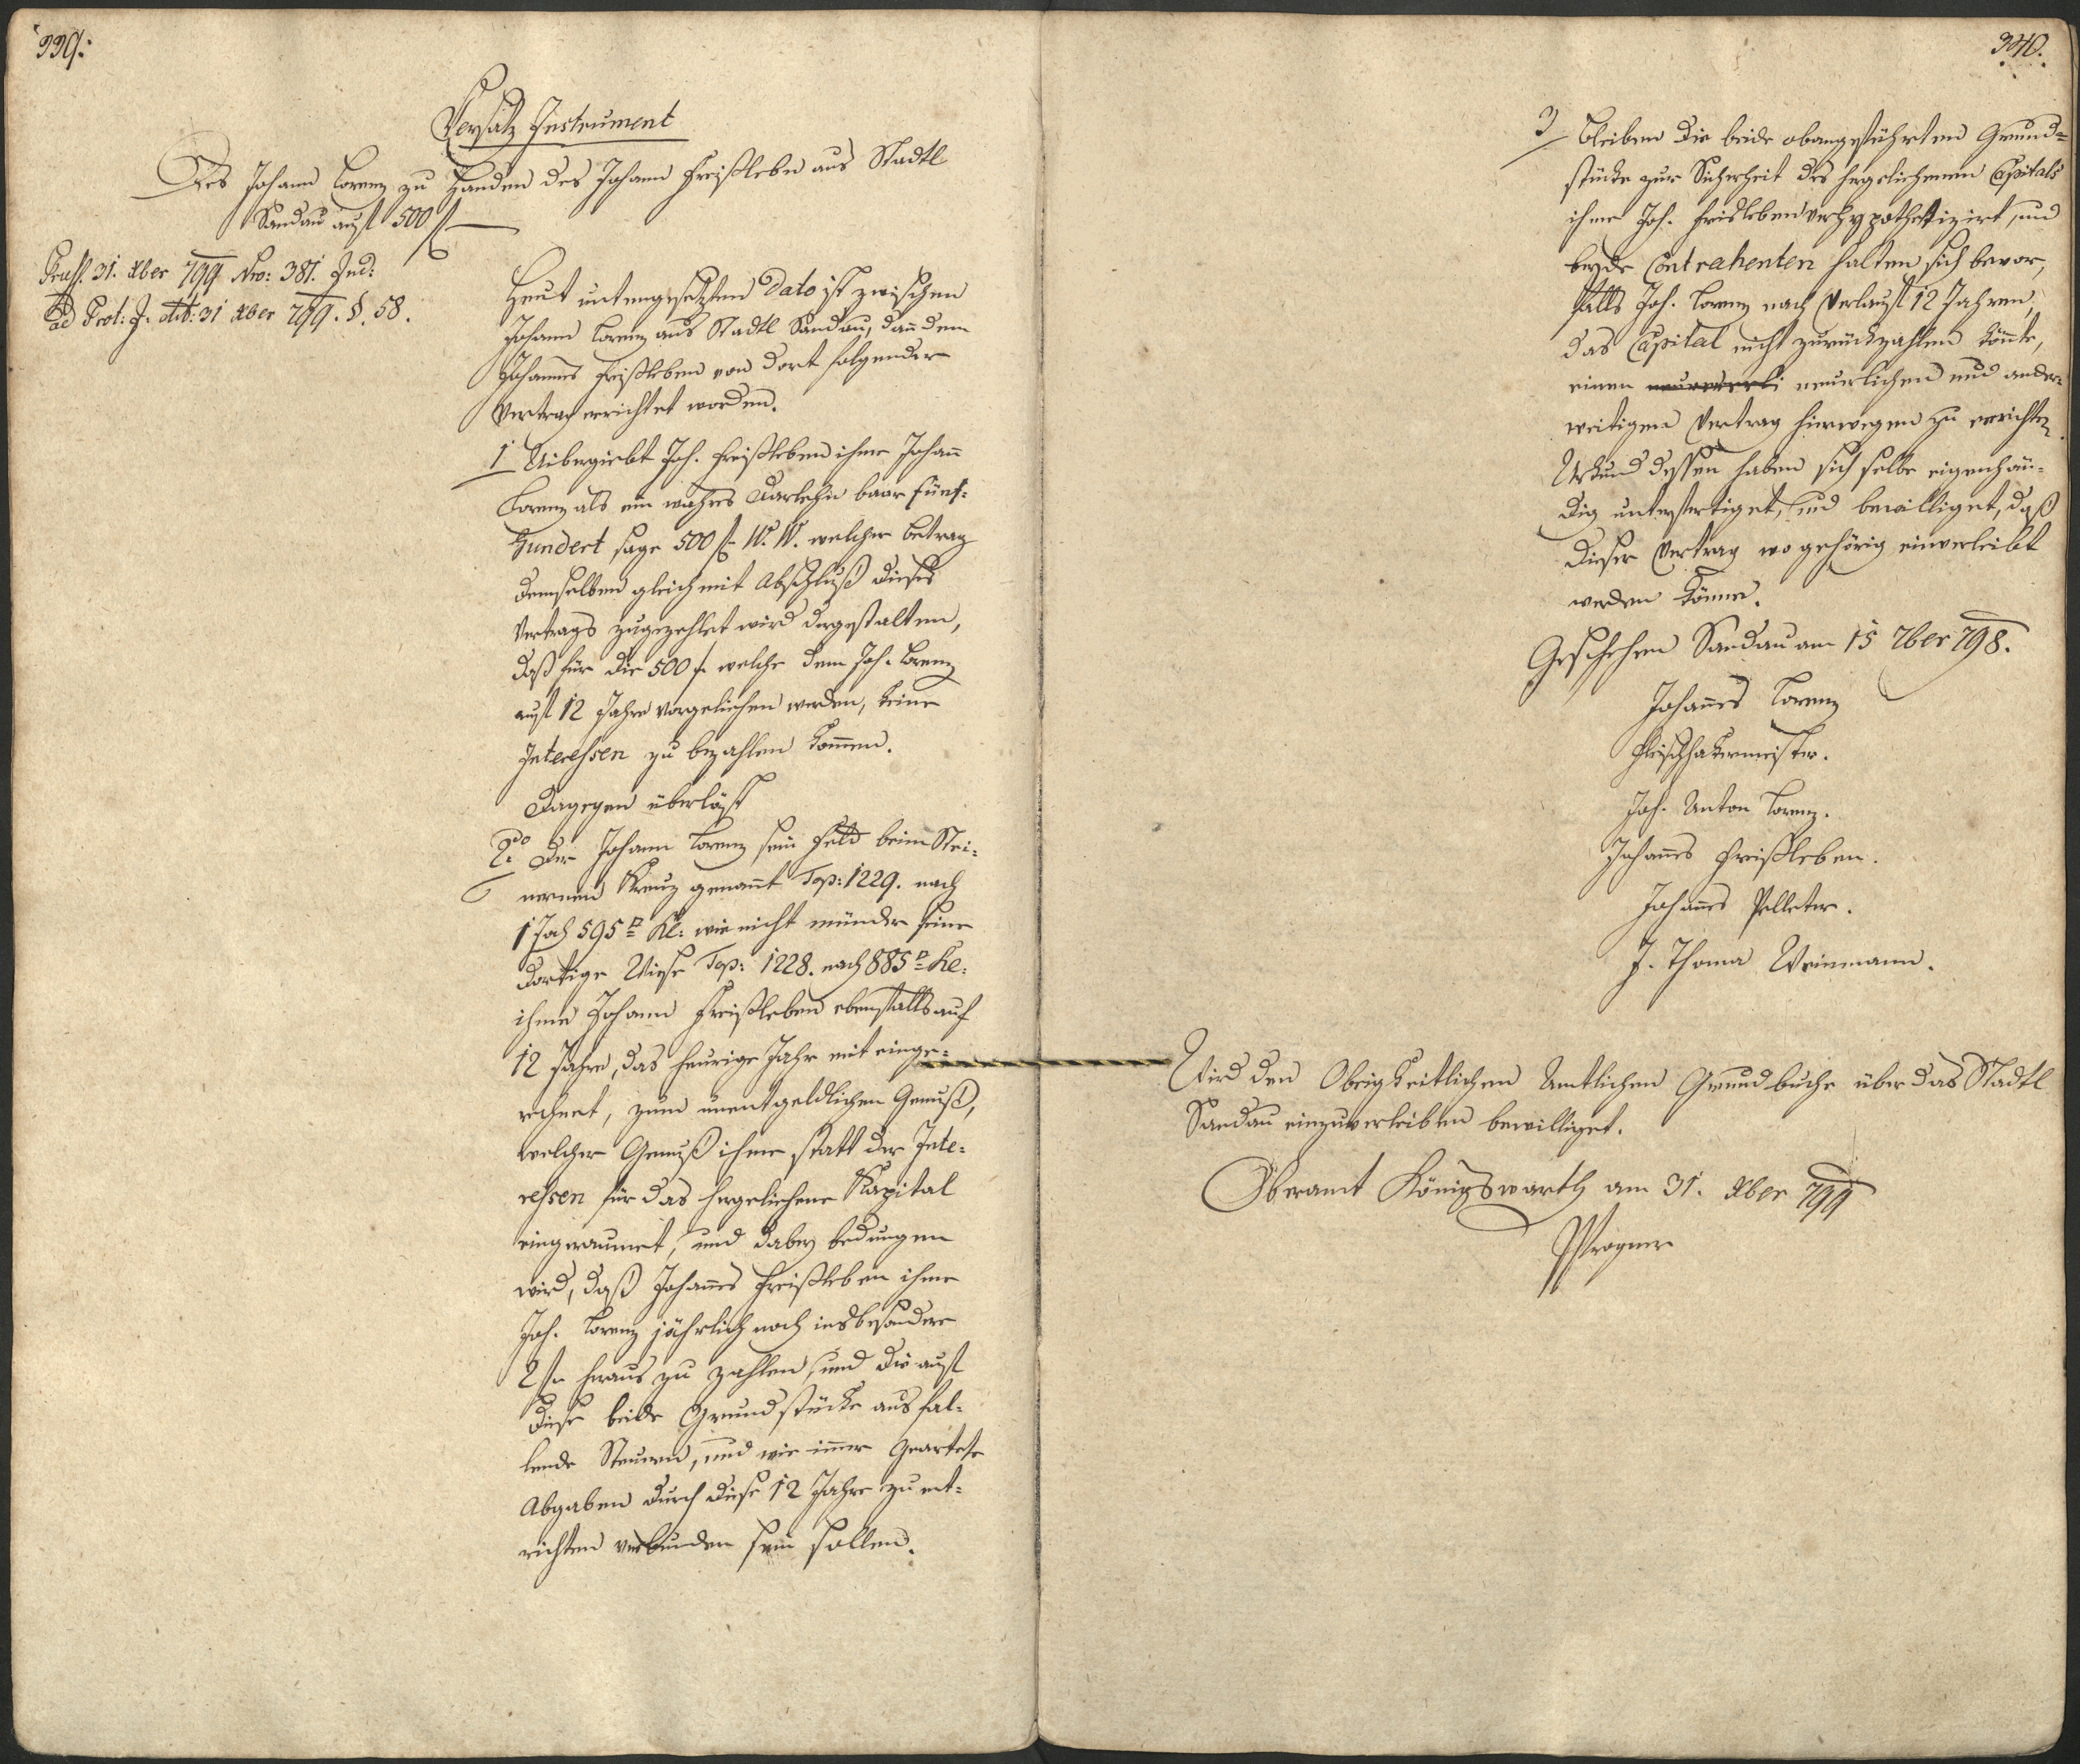 339.
Versatz Instrument
Des Johann Lorenz zu Handen des Johann Freißleben aus Stadtl
Sandau auf 500 f
Praes. 31. Xber 799 Nro: 381. Jud:
ad Prot: J. dtto: 31 Xber 799. §. 58.
Heut untengesetzten Dato ist zwischen
Johann Lorenz aus Stadtl Sandau, dan̄ dem
Johannes Freißleben von dort folgender
Vertrag errichtet worden.
1 Uibergiebt Joh. Freißleben ihme Johan̄
Lorenz als ein wahres Darlehn baar fünf-
hundert sage 500 f W. W. welcher Betrag
demselben gleich mit Abschluß dieses
Vertrags zugezehlet wird dergestalten,
daß für die 500 f. welche dem Joh. Lorenz
auf 12 Jahre vorgeliehen werden, keine
Interessen zu bezahlen kom̄en.
Dagegen überläßt
2do Der Johann Lorenz sein Feld beim Stei-
nernen Kreuz genan̄t Top: 1229. nach
1 Joch 595 □ Kl: wie nicht minder seine
dortige Wiese Top: 1228. nach 885 □ Kl:
ihme Johann Freißleben ebenfalls auf
12 Jahre, das heurige Jahr mit einge-
rechnet, zum unentgeldlichen Genuß,
welcher Genuß ihme statt der Inte-
ressen für das hergeliehene Kapital
eingeraumet, und dabey bedungen
wird, daß Johan̄es Freißleben ihme
Joh. Lorenz jährlich noch insbesondere
2 f. heraus zu zahlen, und die auf
diese beide Grundstücke ausfal-
lende Steuern, und wie im̄er Geartete
Abgaben durch diese 12 Jahre zu ent-
richten verbunden sein sollen.
340.
3 Bleiben die beide obangeführten Grund-
stücke zur Sicherheit des hergeliehenen Capitals
ihme Joh. Freisleben verhypothetizirt, und
beyde Contrahenten halten sich bevor,
falls Joh. Lorenz nach Verlauf 12 Jahren,
das Capital nicht zurückzahlen kön̄te,
einen neuerlichen und ander-
weitigen Vertrag hierwegen zu errichten.
Urkund dessen haben sich selbe eigenhän-
dig unterfertiget, und bewilliget, daß
dieser Vertrag wo gehörig einverleibt
werden könne.
Geschehen Sandau am 15 7ber 798.
Johan̄es Lorenz
Fleischhakermeister.
Joh. Anton Lorenz.
Johan̄es Freißleben.
Johan̄es Pelleter.
J. Thoma Weinmann.
Wird den Obrigkeitlichen Amtlichen Grundbuche über das Stadtl
Sandau einzuverleiben bewilliget.
Oberamt Königswarth am 31. Xber 799
Pfrogner